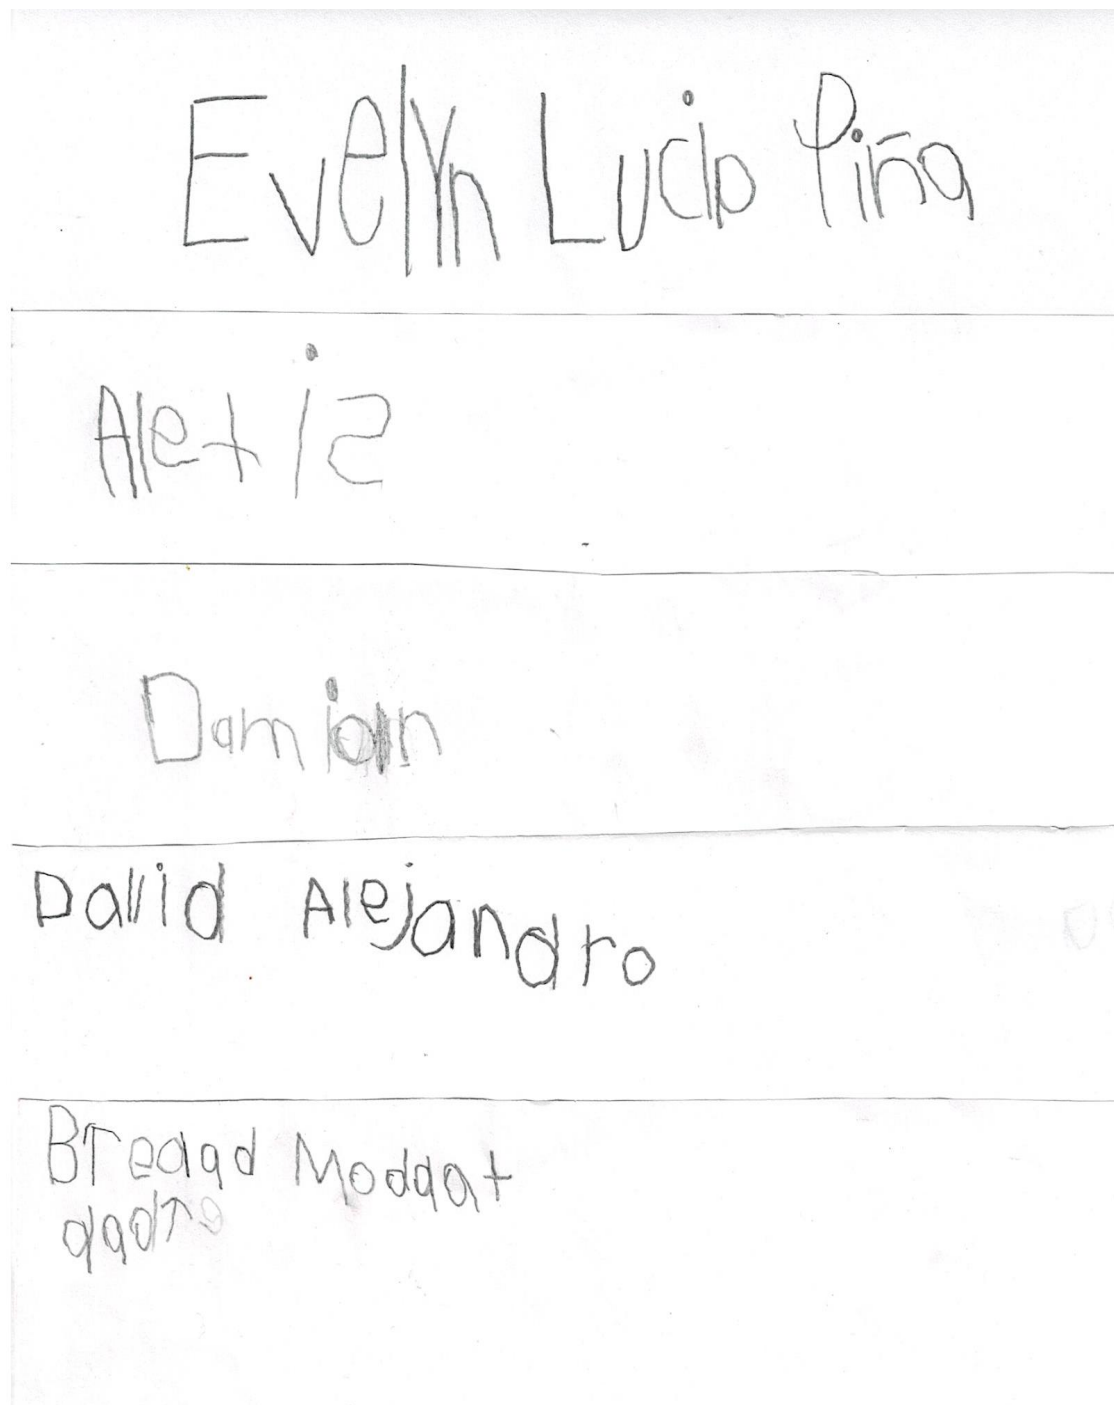 Evelyn Lucio Piña
Alexiz
Damian
David Alejandro
Breaqd Moddat